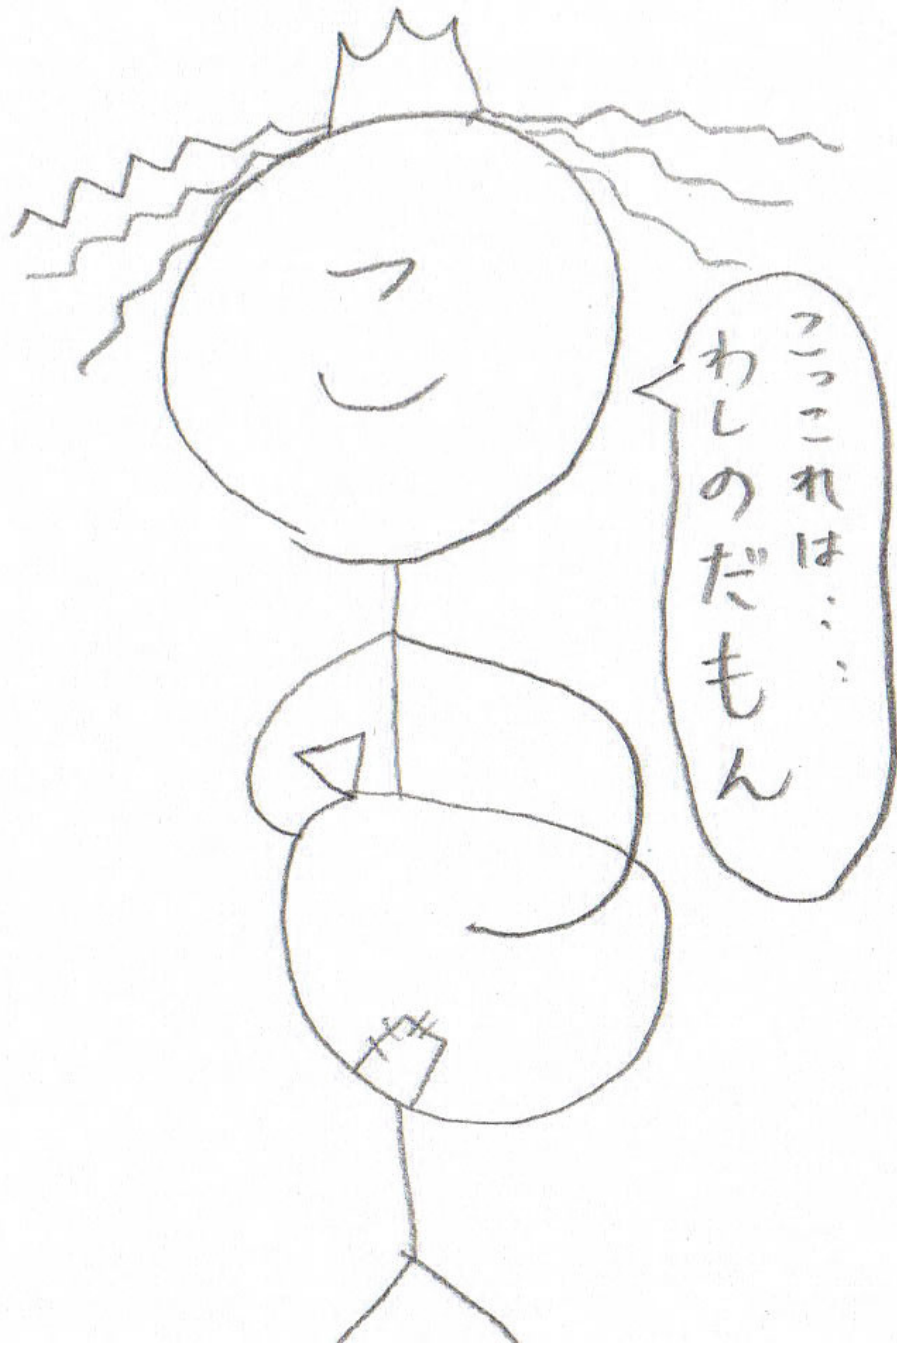 こっこれは……
わしのだもん